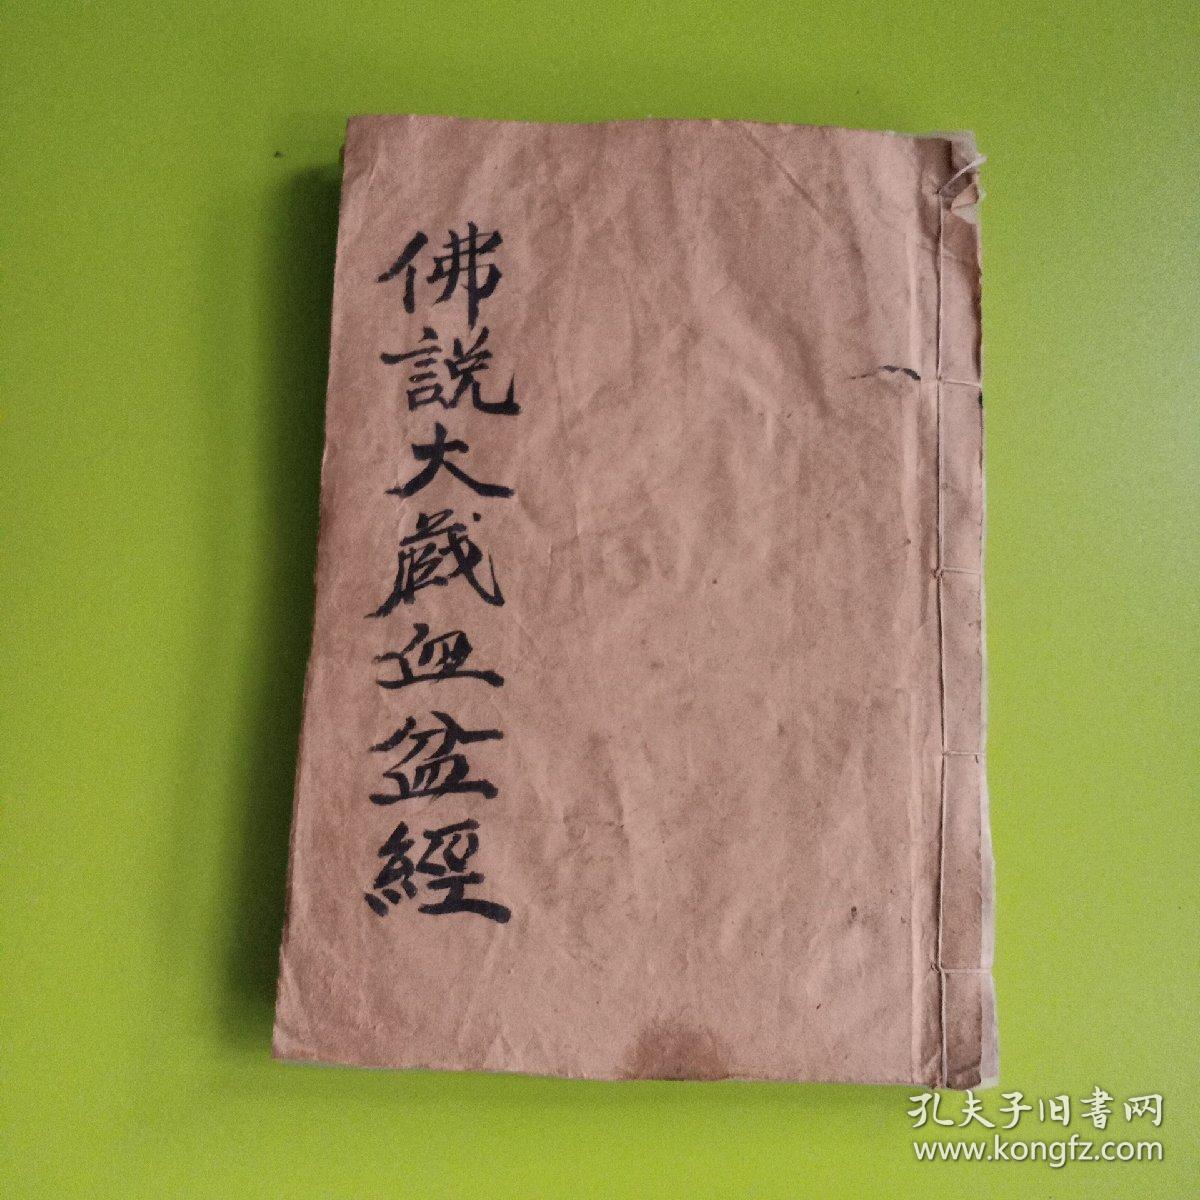 佛說大藏血盆經
孔夫子旧書网
www.kongfz.com